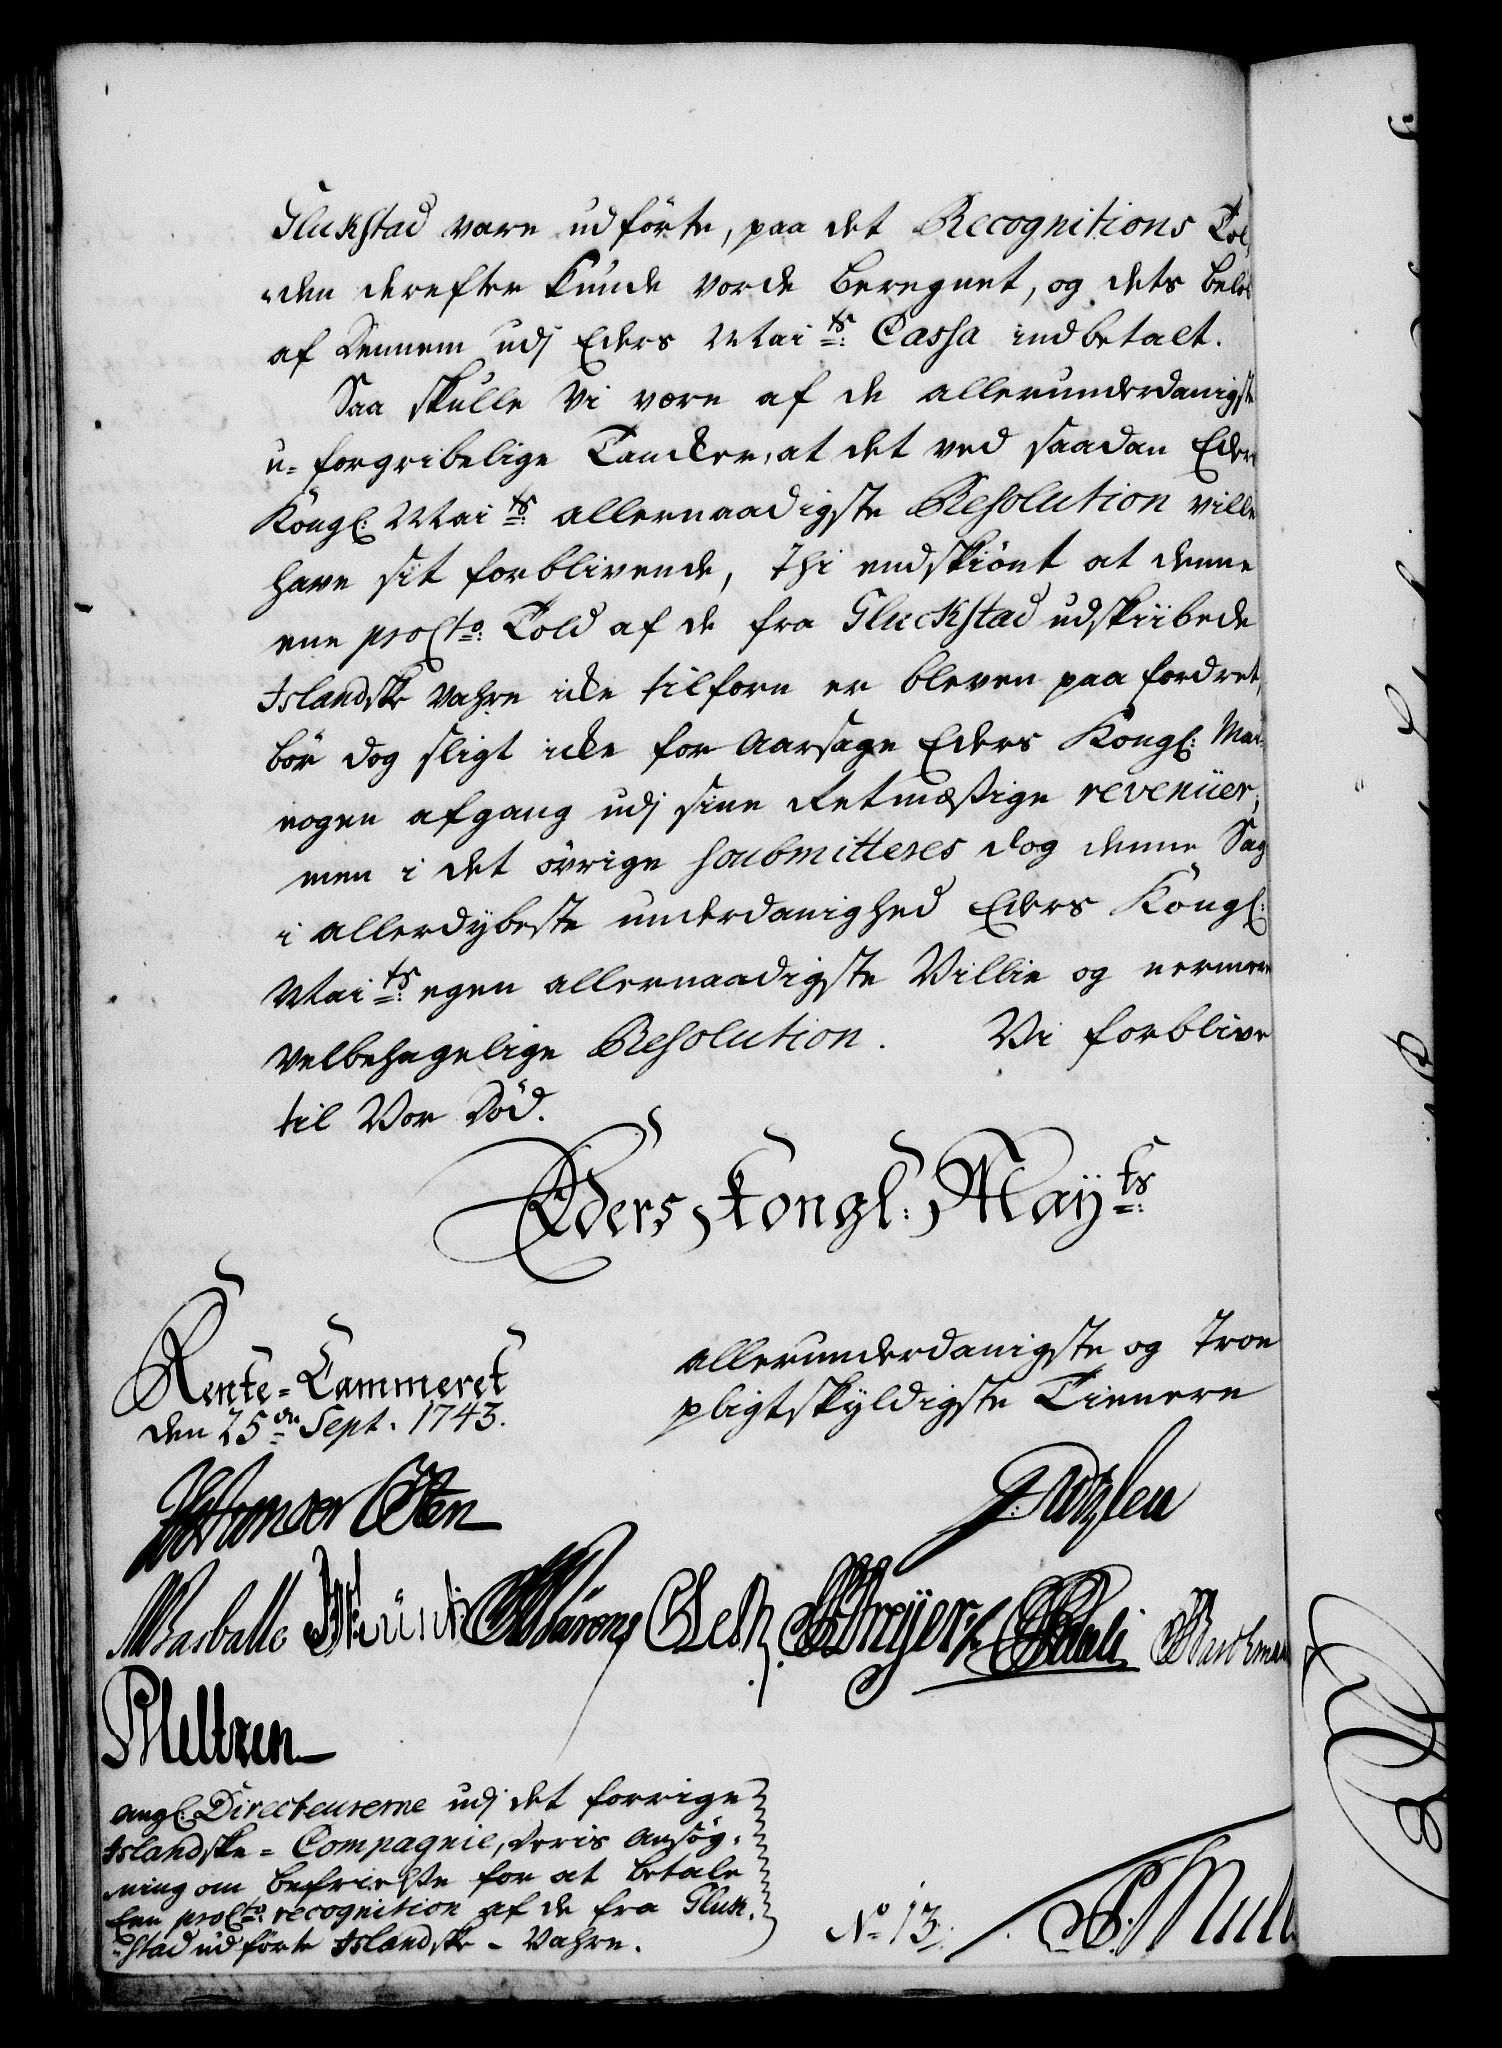 Gluckstad vare udförte, paa det Recognitions Tol,
den derefter kunde vorde beregnet, og dets belöb
af dennem udj Eders Maits: Cassa indbetalt.
Saa skulle Vi være af de allerunderdanigste
u-forgribelige Tancker, at det ved saadan Eders
Kongl: Maits: allernaadigste Resolution ville
have sit forblivende, Thi endskiönt at denne
ene proCto: Told af de fra Gluckstad udskiibede
Islandske Vahre icke tilforn er bleven paafordret,
bör dog sligt icke foraarsage Eders Kongl: Mai
nogen afgang udj sine Retmæssige revenüer;
men i det övrige soubmitteres dog denne Sag
i allerdybeste underdanighed Eders Kongl:
Maits: egen allernaadigste Villie og nermere
velbehagelige Resolution. Vi forblive
til Vor Död.
Eders Kongl: Mayts:
Rente-Cammeret
den 25de Sept. 1743.
allerunderdanigste og Troe
pligtskyldigste Tienere
von der Osten
Meltzen
angl: Directeurerne udj det forrige
Islandske-Compagnie, deris Ansög-
ning om befrielse for at betale
Een proCto: recognition af de fra Gluck-
stad udförte Islandske-Vahre.
No 13.